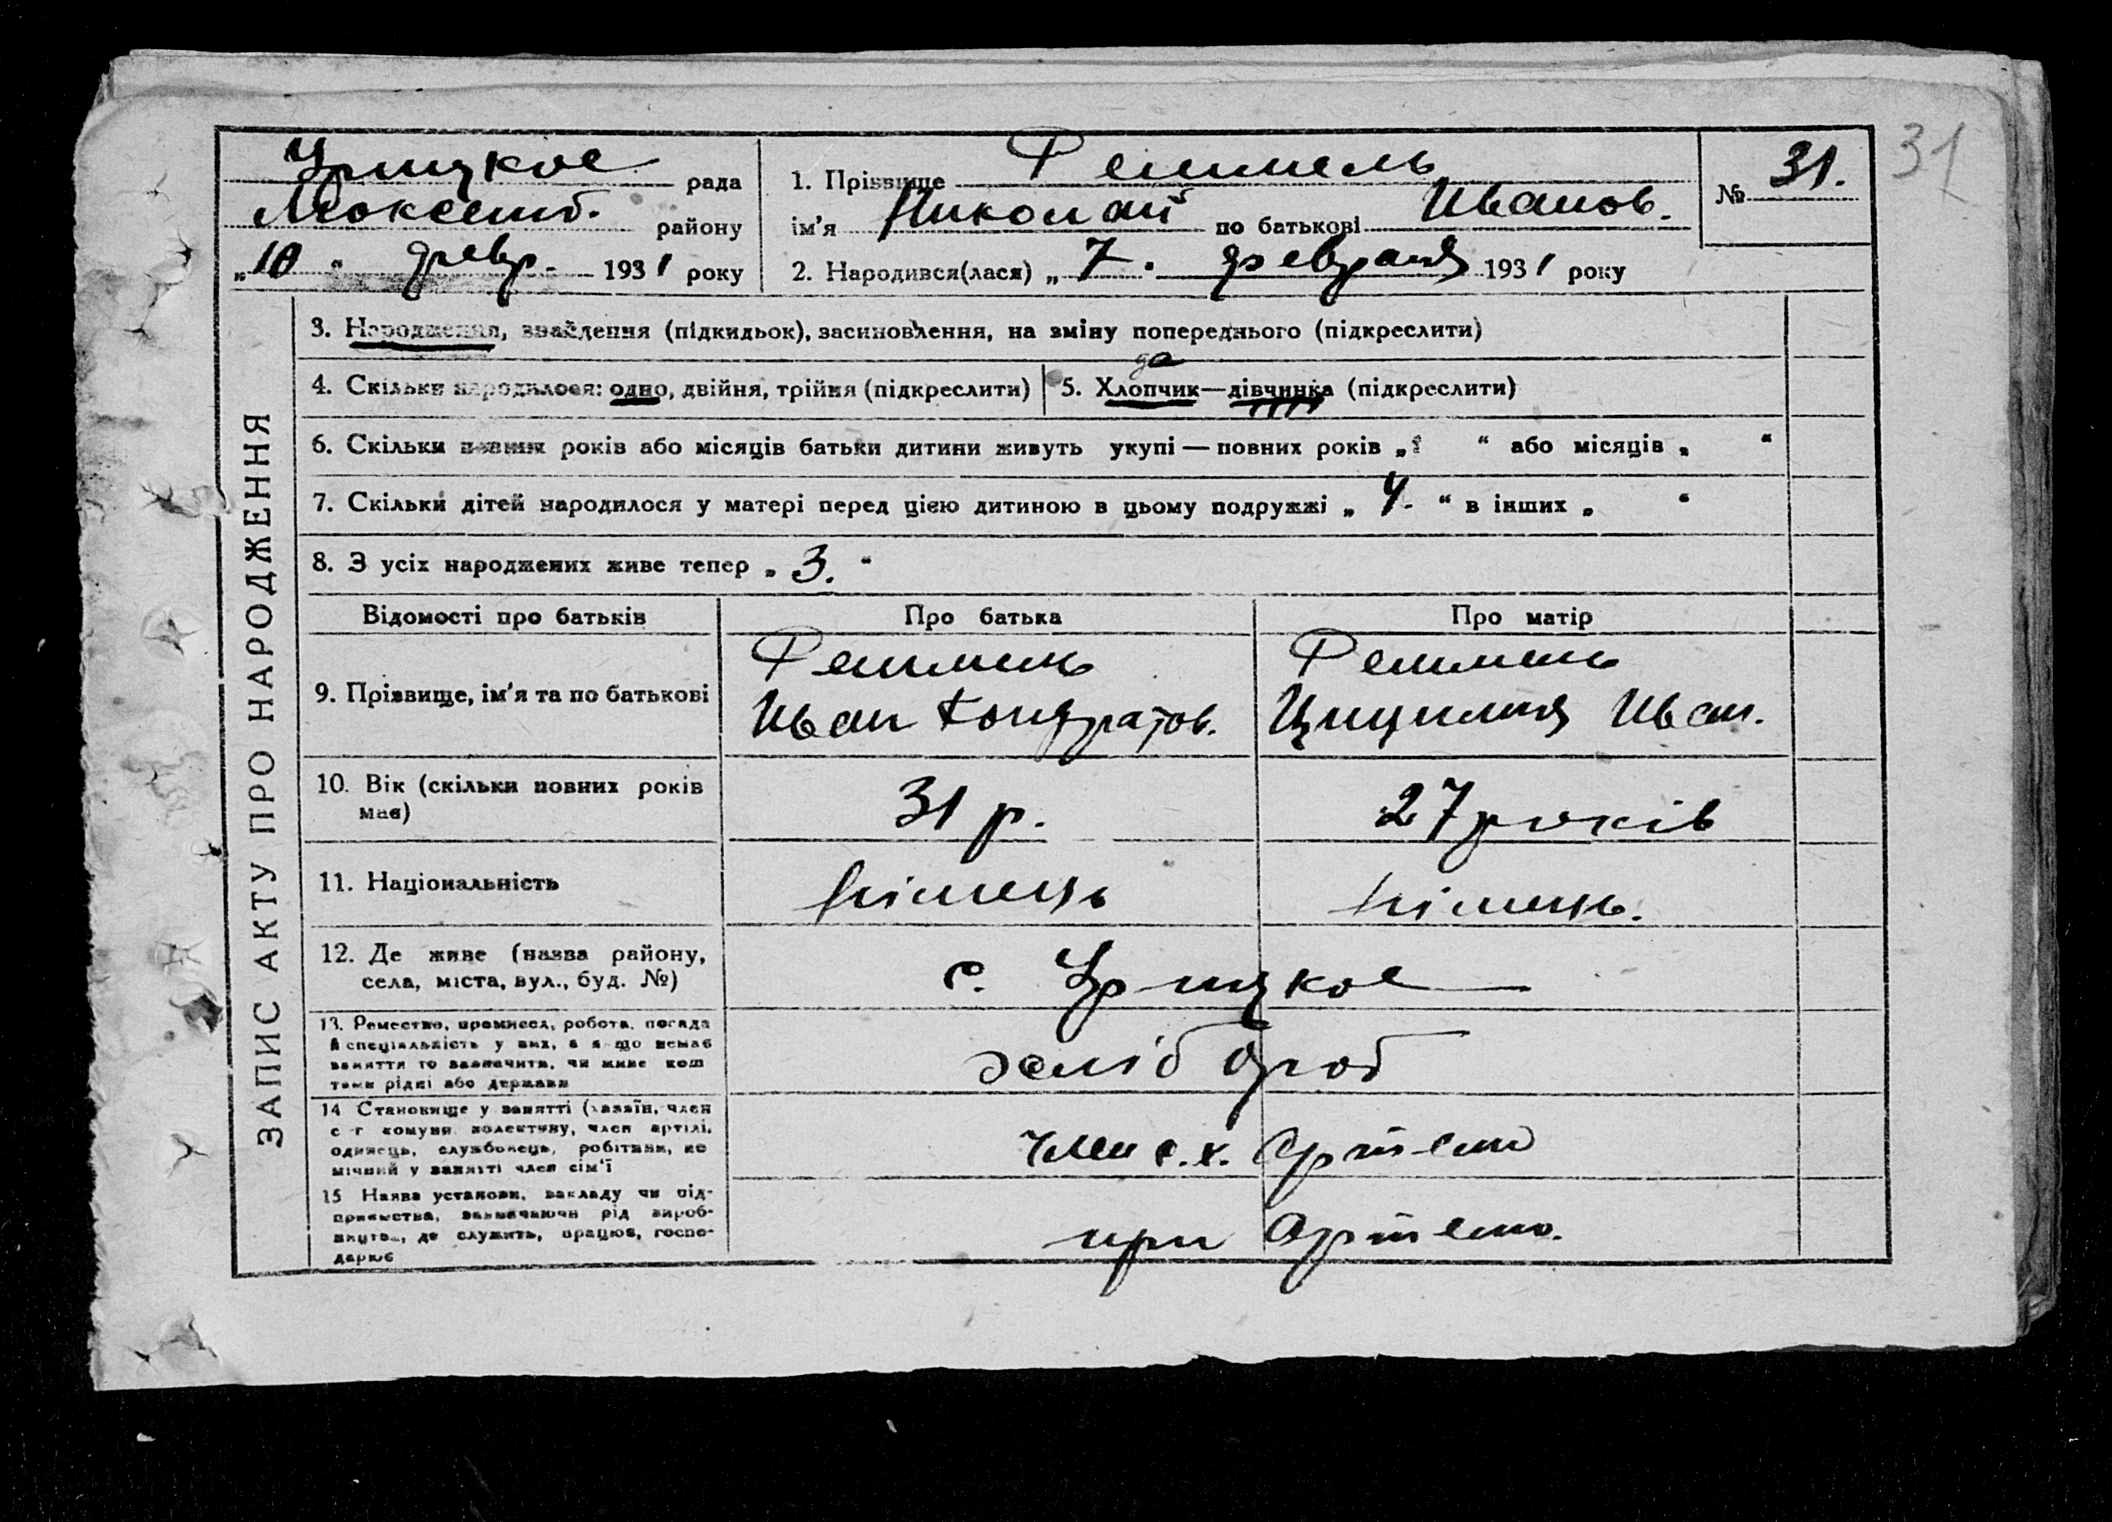 31
Урицкое рада
Люксемб. району
„10“ февр. 1931 року
1. Прізвище Феммель
ім'я Николай по батькові Иванов.
№ 31.
2. Народився(лася) „7. февраля 1931 року
ЗАПИС АКТУ ПРО НАРОДЖЕННЯ
3. Народження, знайдення (підкидьок), засиновлення, на зміну попереднього (підкреслити)
да
4. Скільки народилося: одно, двійня, трійня (підкреслити)
5. Хлопчик—дівчинка (підкреслити)
6. Скільки повних років або місяців батьки дитини живуть укупі — повних років „ “ або місяців „ “
7. Скільки дітей народилося у матері перед цією дитиною в цьому подружжі „ 4. “ в інших „ “
8. З усіх народжених живе тепер „ 3. “
Відомості про батьків Про батька Про матір
9. Прізвище, ім'я та по батькові
Феммель
Иван Кондратов.
Феммель
Цицилия Иван.
10. Вік (скільки повних років
має)
31 р.
27 років
11. Національність
німець
німець.
12. Де живе (назва району,
села, міста, вул., буд. №)
с. Урицкое
13. Ремество, промисел, робота, посада
й спеціяльність у них, а якщо немає
заняття то зазначити, чи живе кош
тами рідні або держави
хлібороб
14 Становище у занятті (хазяїн, член
с-г комуни колективу, член артілі,
одинець, службовець, робітник, по
мічний у занятті член сім'ї
член с.х. Артели
15 Назва установи, закладу чи під-
приємства, зазначаючи рід вироб-
ництва, де служить, працює, госпо-
дарює
при Артели.